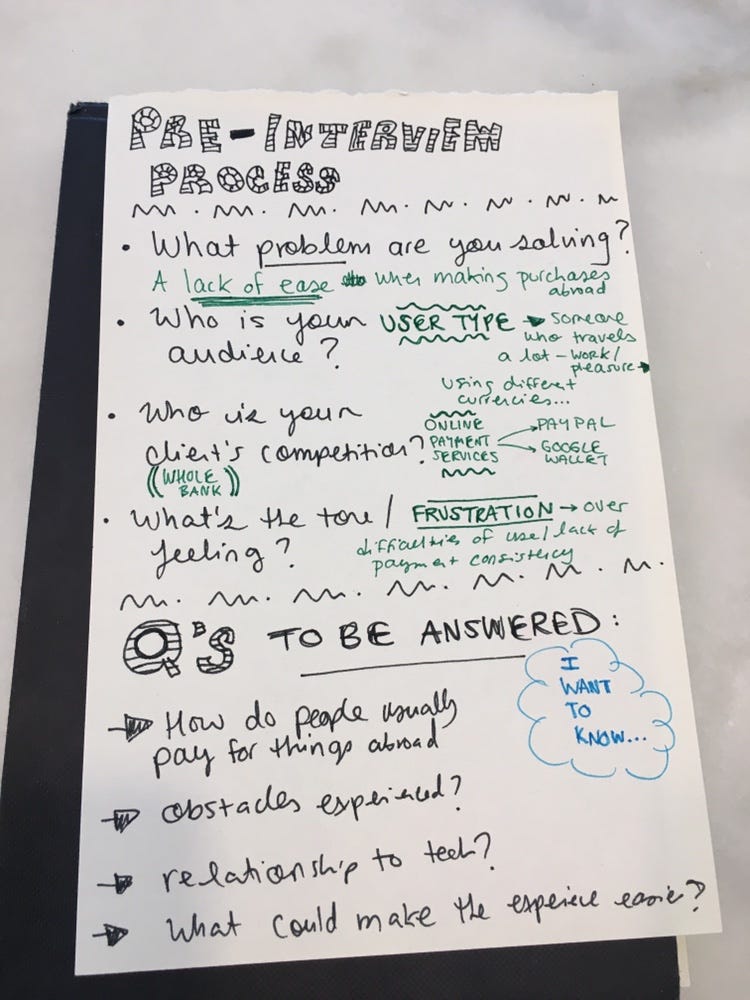 PRE-INTERVIEW
PROCESS
• What problem are you solving?
A lack of ease when making purchases
abroad
• Who is your
audience?
USER TYPE → someone
who travels
a lot - work/
pleasure →
using different
currencies...
• Who is your
client's competition?
((WHOLE
BANK))
ONLINE
PAYMENT
SERVICES
→ PAYPAL
→ GOOGLE
WALLET
• What's the tone/
feeling?
FRUSTRATION → over
difficulties of use/lack of
payment consistency
Q's TO BE ANSWERED:
I
WANT
TO
KNOW...
→ How do people usually
pay for things abroad
→ obstacles experienced?
→ relationship to tech?
→ What could make the experience easier?